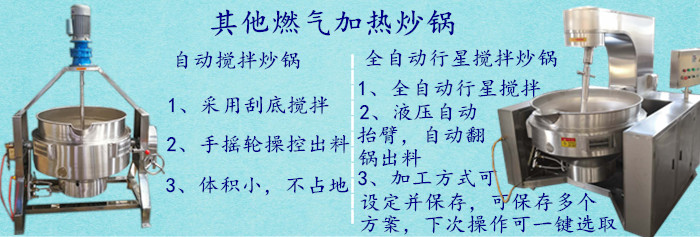 其他燃气加热炒锅
自动搅拌炒锅
1、采用刮底搅拌
2、手摇轮操控出料
3、体积小，不占地
全自动行星搅拌炒锅
1、全自动行星搅拌
2、液压自动
抬臂，自动翻
锅出料
3、加工方式可
设定并保存，可保存多个
方案，下次操作可一键选取